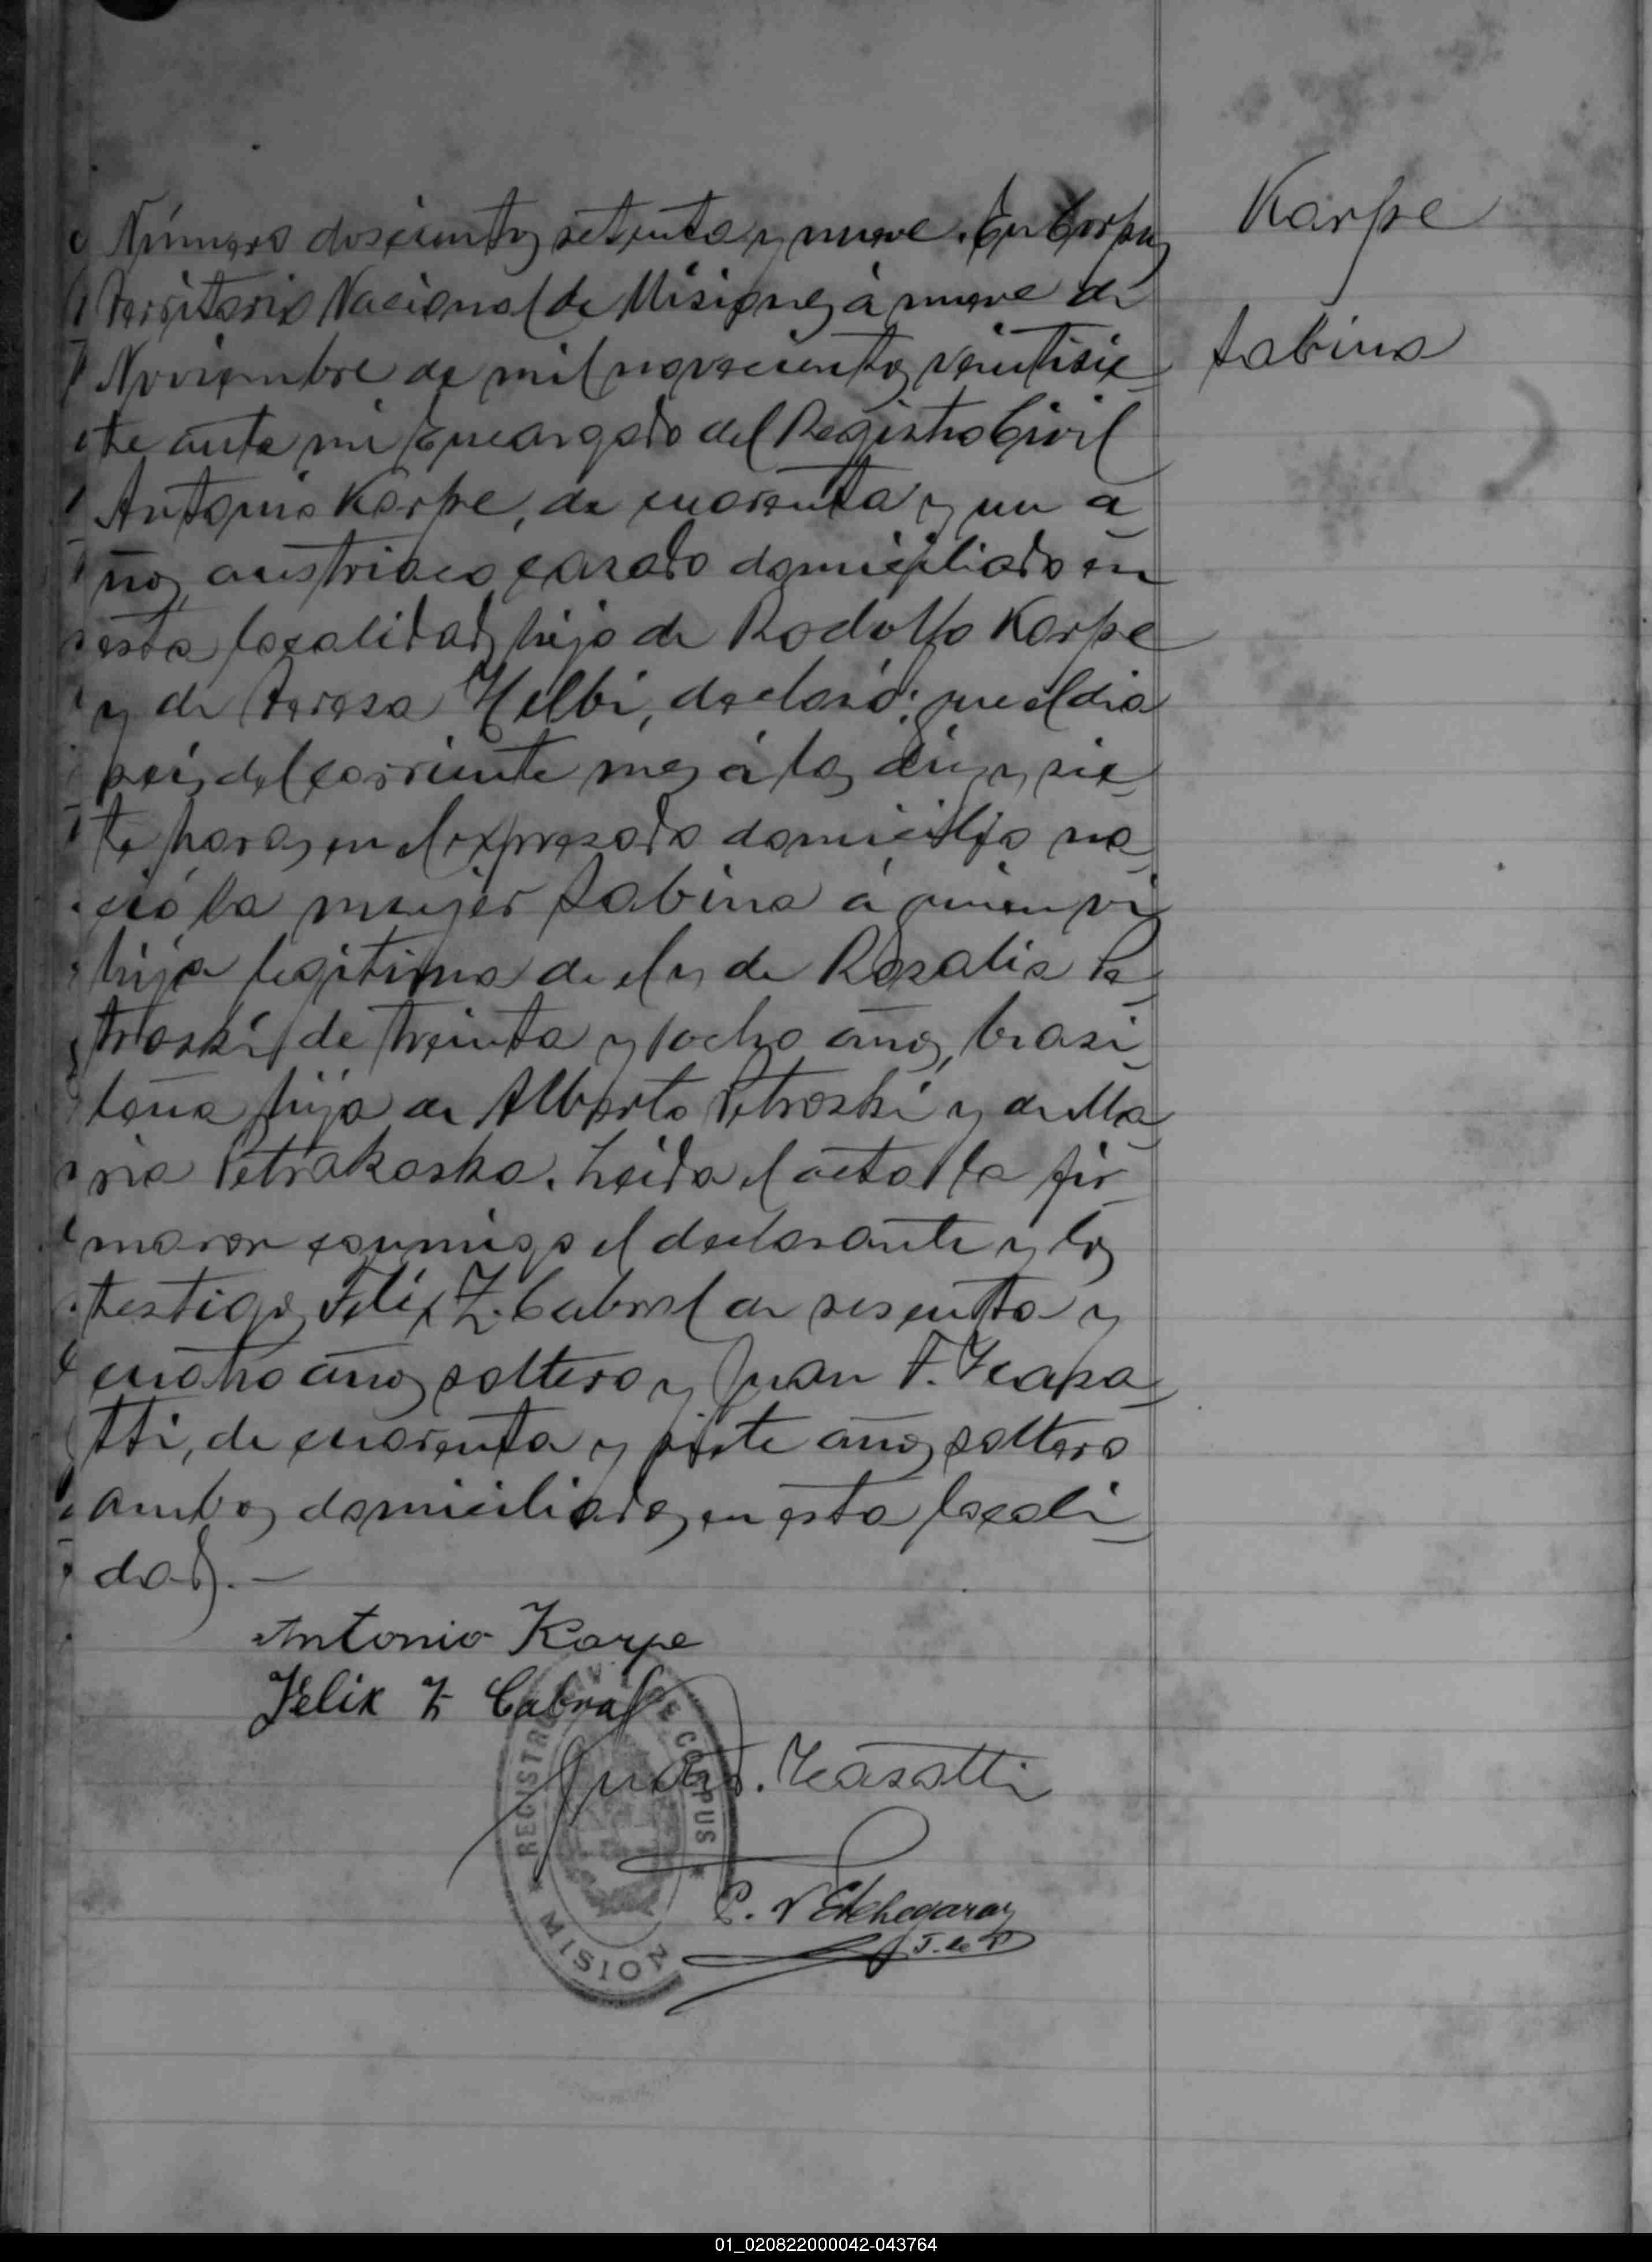 Karpe
Sabina
Número doscientos setenta y nueve. En Corpus
Territorio Nacional de Misiones á nueve de
Noviembre de mil novecientos veintisie
te ante mi Encargado del Registro Civil
Antonio Karpe, de cuarenta y un a
ños, austriaco casado domiciliado en
esta localidad, hijo de Rodolfo Karpe
y de Teresa Helbi, declaró: que el dia
seis del corriente mes á las diez y sie
te horas en el expresado domicilio na
ció la mujer Sabina á quien vi
hija legitima de el y de Rosalia Pe
troski, de treinta y ocho años, brasi
leña hija de Alberto Petroski y de Ma
ria Petrakoska. Leida el acta la fir
maron conmigo el declarante y los
testigos Felix Z. Cabral de sesenta y
cuatro años soltero y Juan F.
de cuarenta y siete años soltero
ambos domiciliados en esta locali
dad.—
Antonio Karpe
Felix Z Cabral
Juan
P. V Etchegaray
J. de P
REGISTRO CIVIL DE CORPUS
MISIONES
01_020822000042-043764